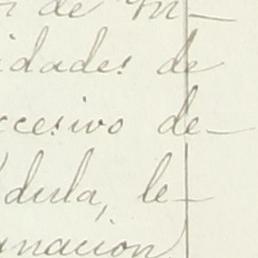 de in-
idades de
ccesivo de-
dula, le-
nacion